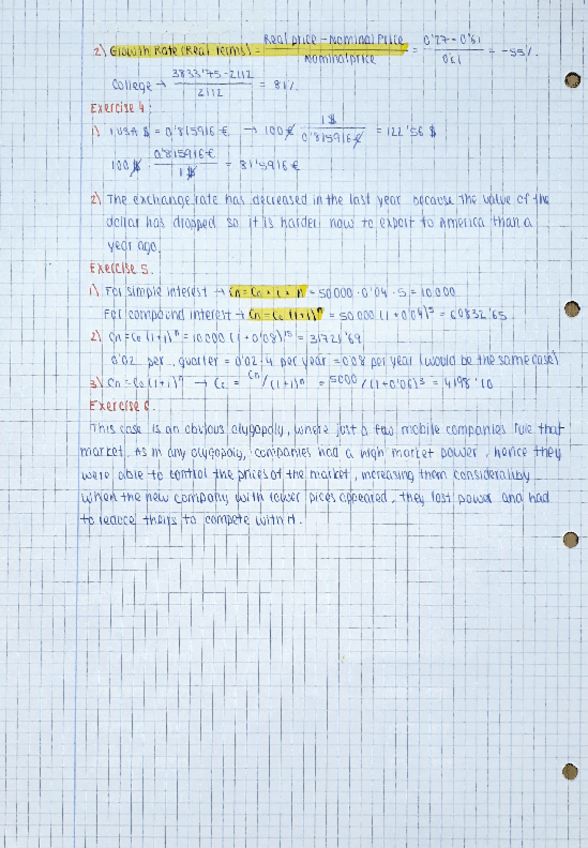 2) Growth Rate (Real Terms) = Real price - Nominal Price / Nominal price = 0'27 - 0'61 / 0'61 = -55%
College → 3833'75 - 2112 / 2112 = 81%
Exercise 4:
1) 1 USA $ = 0'815916 € → 100 € · 1 $ / 0'815916 € = 122'56 $
100 $ · 0'815916 € / 1 $ = 81'5916 €
2) The exchange rate has decreased in the last year because the value of the
dollar has dropped so it is harder now to export to America than a
year ago.
Exercise 5.
1) For simple interest → Cn = Co · i · n = 50000 · 0'04 · 5 = 10000
For compound interest → Cn = Co (1+i)^n = 50000 (1 + 0'04)^5 = 60832'65
2) Cn = Co (1+i)^n = 10000 (1 + 0'08)^15 = 31721'69
0'02 per quarter = 0'02 · 4 per year = 0'08 per year (would be the same case)
3) Cn = Co (1+i)^n → Co = Cn / (1+i)^n = 5000 / (1+0'06)^3 = 4198'10
Exercise 6.
This case is an obvious olygopoly, where just a few mobile companies rule that
market. As in any olygopoly, companies had a high market power, hence they
were able to control the prices of the market, increasing them considerably
When the new company with lower prices appeared, they lost power and had
to reduce theirs to compete with it.